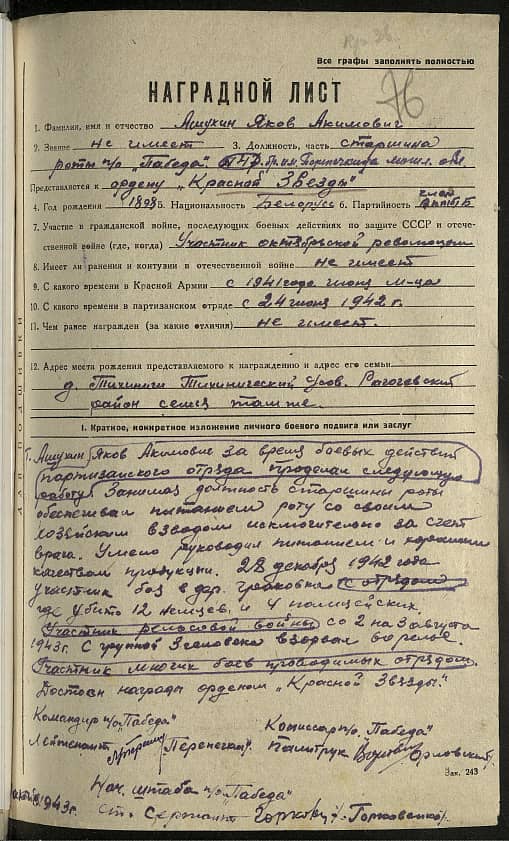 Все графы заполнять полностью
76
НАГРАДНОЙ ЛИСТ
1. Фамилия, имя и отчество Ашухин Яков Акимович
2. Звание не имеет 3. Должность, часть старшина
роты п/о "Победа"
Представляется к ордену "Красной Звезды"
4. Год рождения 1898 5. Национальность Белорусс 6. Партийность член
7. Участие в гражданской войне, последующих боевых действиях по защите СССР и отече-
ственной войне (где, когда) Участник октябрьской революции
8. Имеет ли ранения и контузии в отечественной войне не имеет
9. С какого времени в Красной Армии с 1941 года июня м-ца
10. С какого времени в партизанском отряде с 24 июня 1942 г.
11. Чем ранее награжден (за какие отличия) не имеет.
12. Адрес места рождения представляемого к награждению и адрес его семьи
д. Тихиничи Тихинический с/сов. Рогочевский
район семья также.
I. Краткое, конкретное изложение личного боевого подвига или заслуг
Ашухин Яков Акимович за время боевых действий
партизанского отряда проделал следующую
работу. Занимая должность старшины роты
обеспечивал питанием роту со своим
хозяйским взводом исключительно за счет
врага. Умело руководил питанием и хорошим
качеством продукции. 28 декабря 1942 года
участник боя в дер. с отрядом
где убито 12 немцев и 4 полицейских.
Участник рельсовой войны со 2 на 3 августа
1943 г. С группой 3 человека взорвал рельс.
Участник многих боев проводимых отрядом.
Достоин награды орденом "Красной Звезды".
Командир п/о "Победа"
Комиссар п/о "Победа"
Лейтенант
Политрук Орловский
Зак. 243
Нач. штаба п/о "Победа"
1943 г.
ст. Сержант
ДЛЯ ПОДШИВКИ